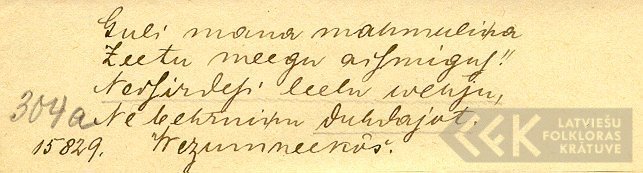 Guli mana mahmuliņa
Zeetu meegu aismigus!
Nedsirdesi leelu wehju,
304a Ne behrniņu duhdajot.
15829. Wezumneekôs.
LATVIEŠU
FOLKLORAS
KRĀTUVE